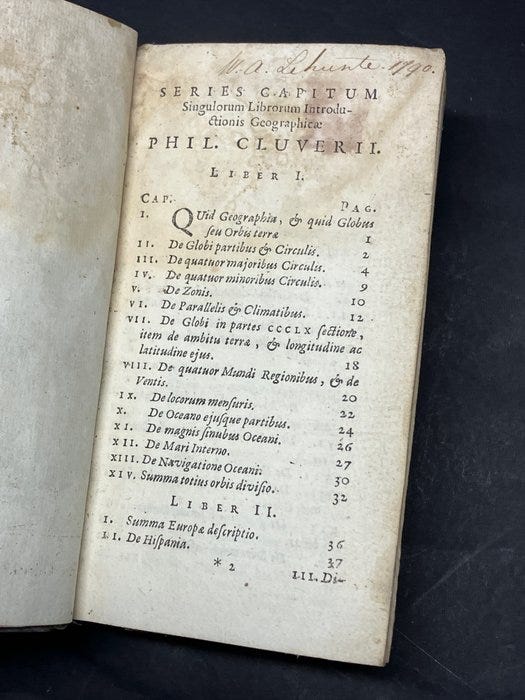 W. A. Lehunte. 1790.
SERIES CAPITUM
Singulorum Librorum Introdu-
ctionis Geographicæ
PHIL. CLUVERII.
LIBER I.
CAP. PAG.
I. QUid Geographia, & quid Globus
seu Orbis terræ 1
II. De Globi partibus & Circulis. 2
III. De quatuor majoribus Circulis. 4
IV. De quatuor minoribus Circulis. 9
V. De Zonis. 10
VI. De Parallelis & Climatibus. 12
VII. De Globi in partes CCCLX sectione,
item de ambitu terræ, & longitudine ac
latitudine ejus. 18
VIII. De quatuor Mundi Regionibus, & de
Ventis. 20
IX. De locorum mensuris. 22
X. De Oceano ejusque partibus. 24
XI. De magnis sinubus Oceani. 26
XII. De Mari Interno. 27
XIII. De Navigatione Oceani. 30
XIV. Summa totius orbis divisio. 32
LIBER II.
I. Summa Europæ descriptio. 36
II. De Hispania. 37
* 2 III. Di-